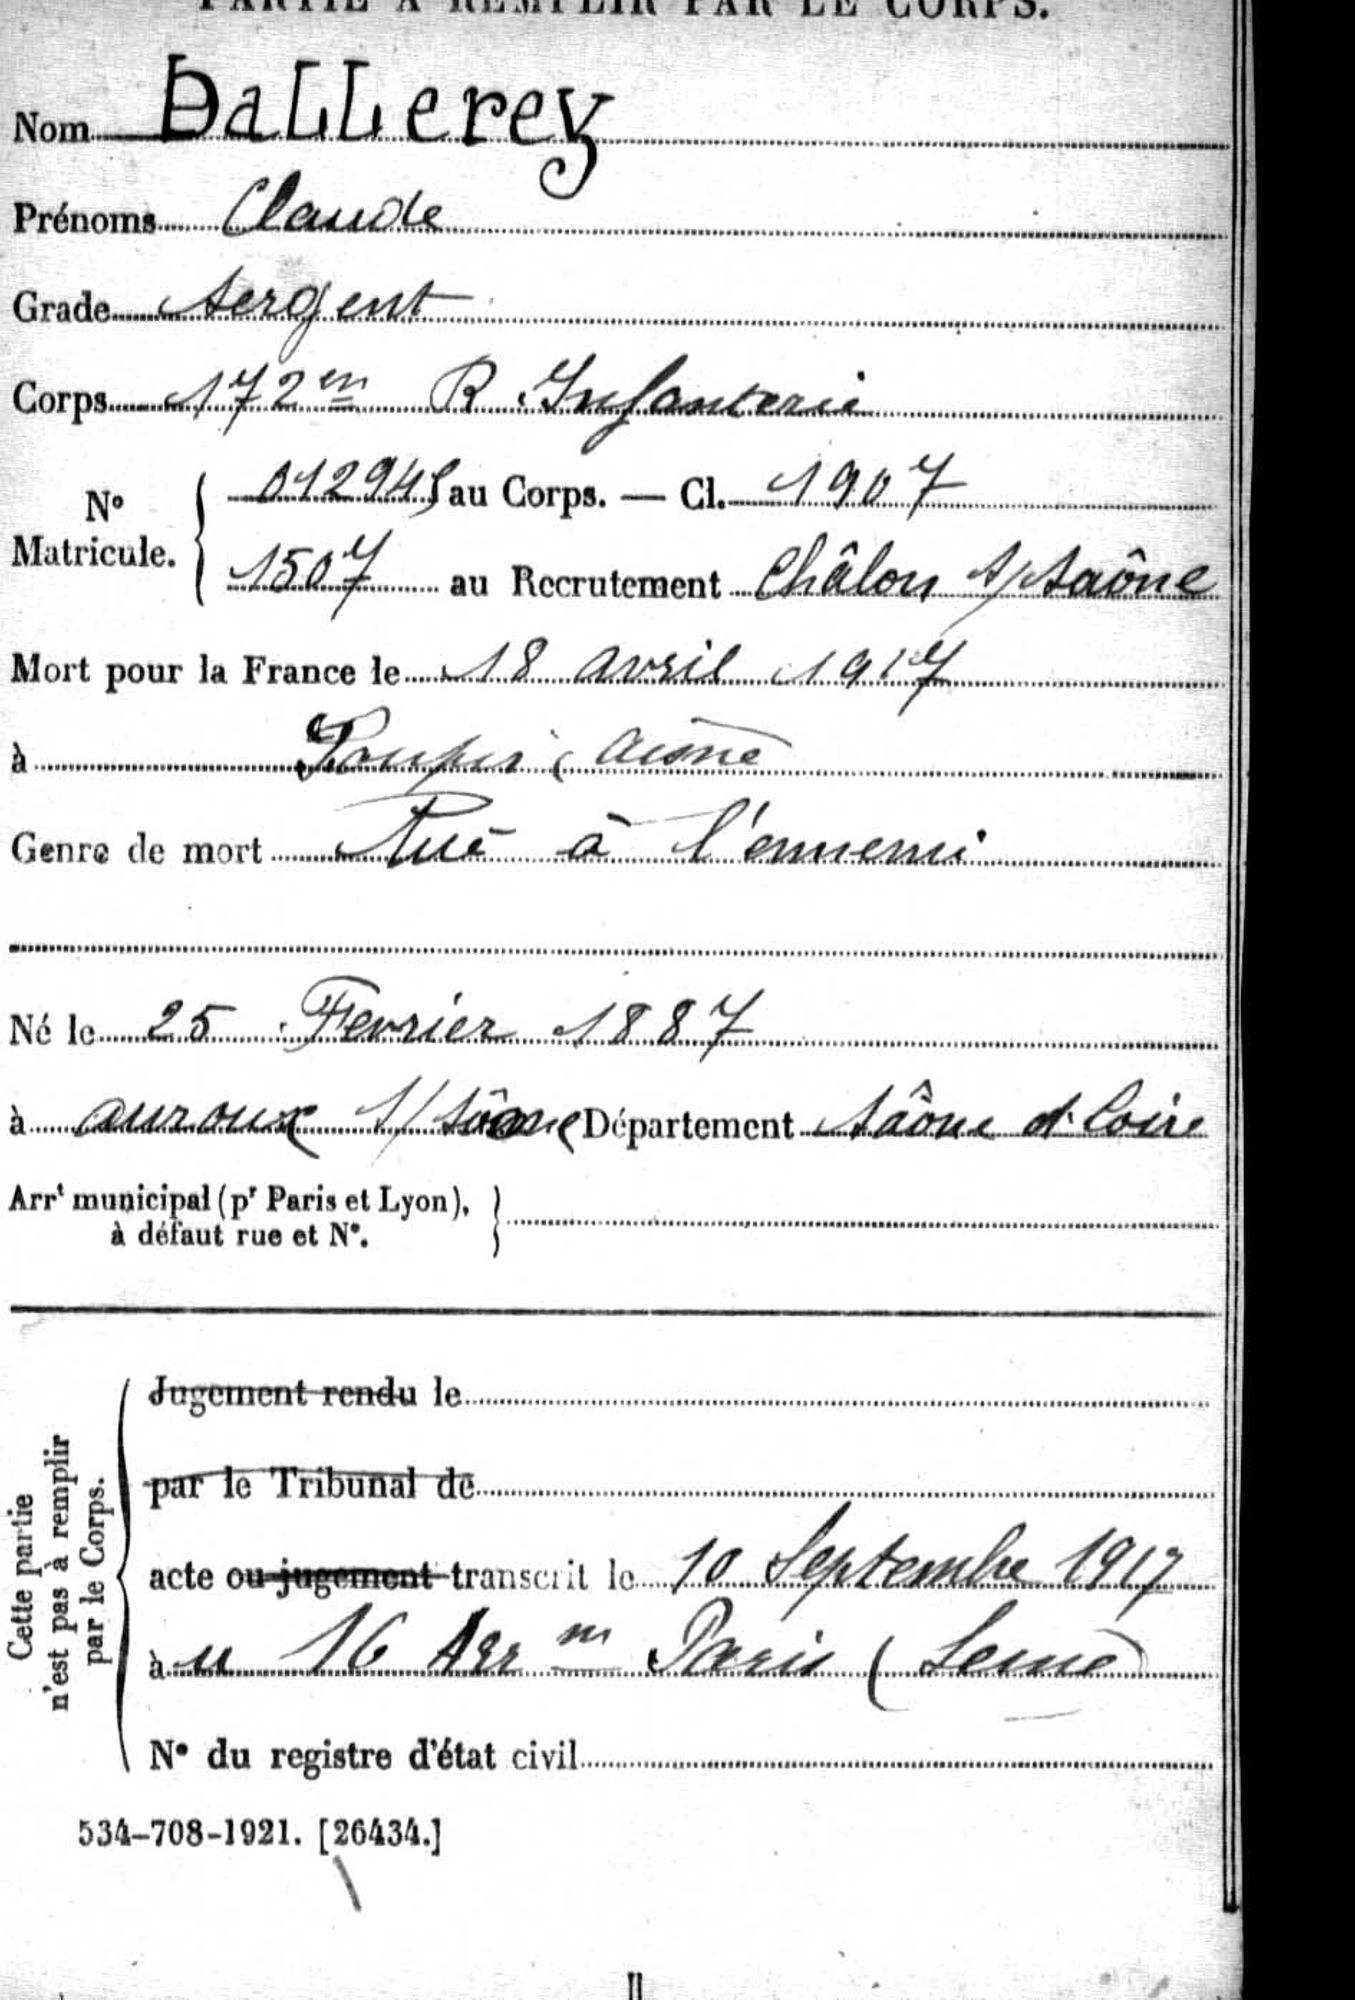 PARTIE A REMPLIR PAR LE CORPS.
Nom Dallerey
Prénoms Claude
Grade Sergent
Corps 172em R. Infanterie
No Matricule. { 012945 au Corps. — Cl. 1907
1507 au Recrutement Châlon s/Saône
Mort pour la France le 18 avril 1917
à (Aisne
Genre de mort Tué à l'ennemi
Né le 25 Fevrier 1887
à ouroux s/ Département Sâône et Loire
Arrt municipal (pr Paris et Lyon),
à défaut rue et No.
Cette partie
n'est pas à remplir
par le Corps.
Jugement rendu le
par le Tribunal de
acte ou jugement transcrit le 10 Septembre 1917
à u 16 Arr m Paris (Seine)
No du registre d'état civil
534-708-1921. [26434.]